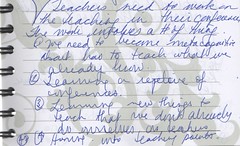 Teachers need to work on
the teaching in their conferences
The work involves a # of things
① We need to become metacognitive
about how to teach what we
already know.
② Learning a repetoire of
③ Learning new things to
teach that we don't already
do ourselves as teachers
into teaching points.